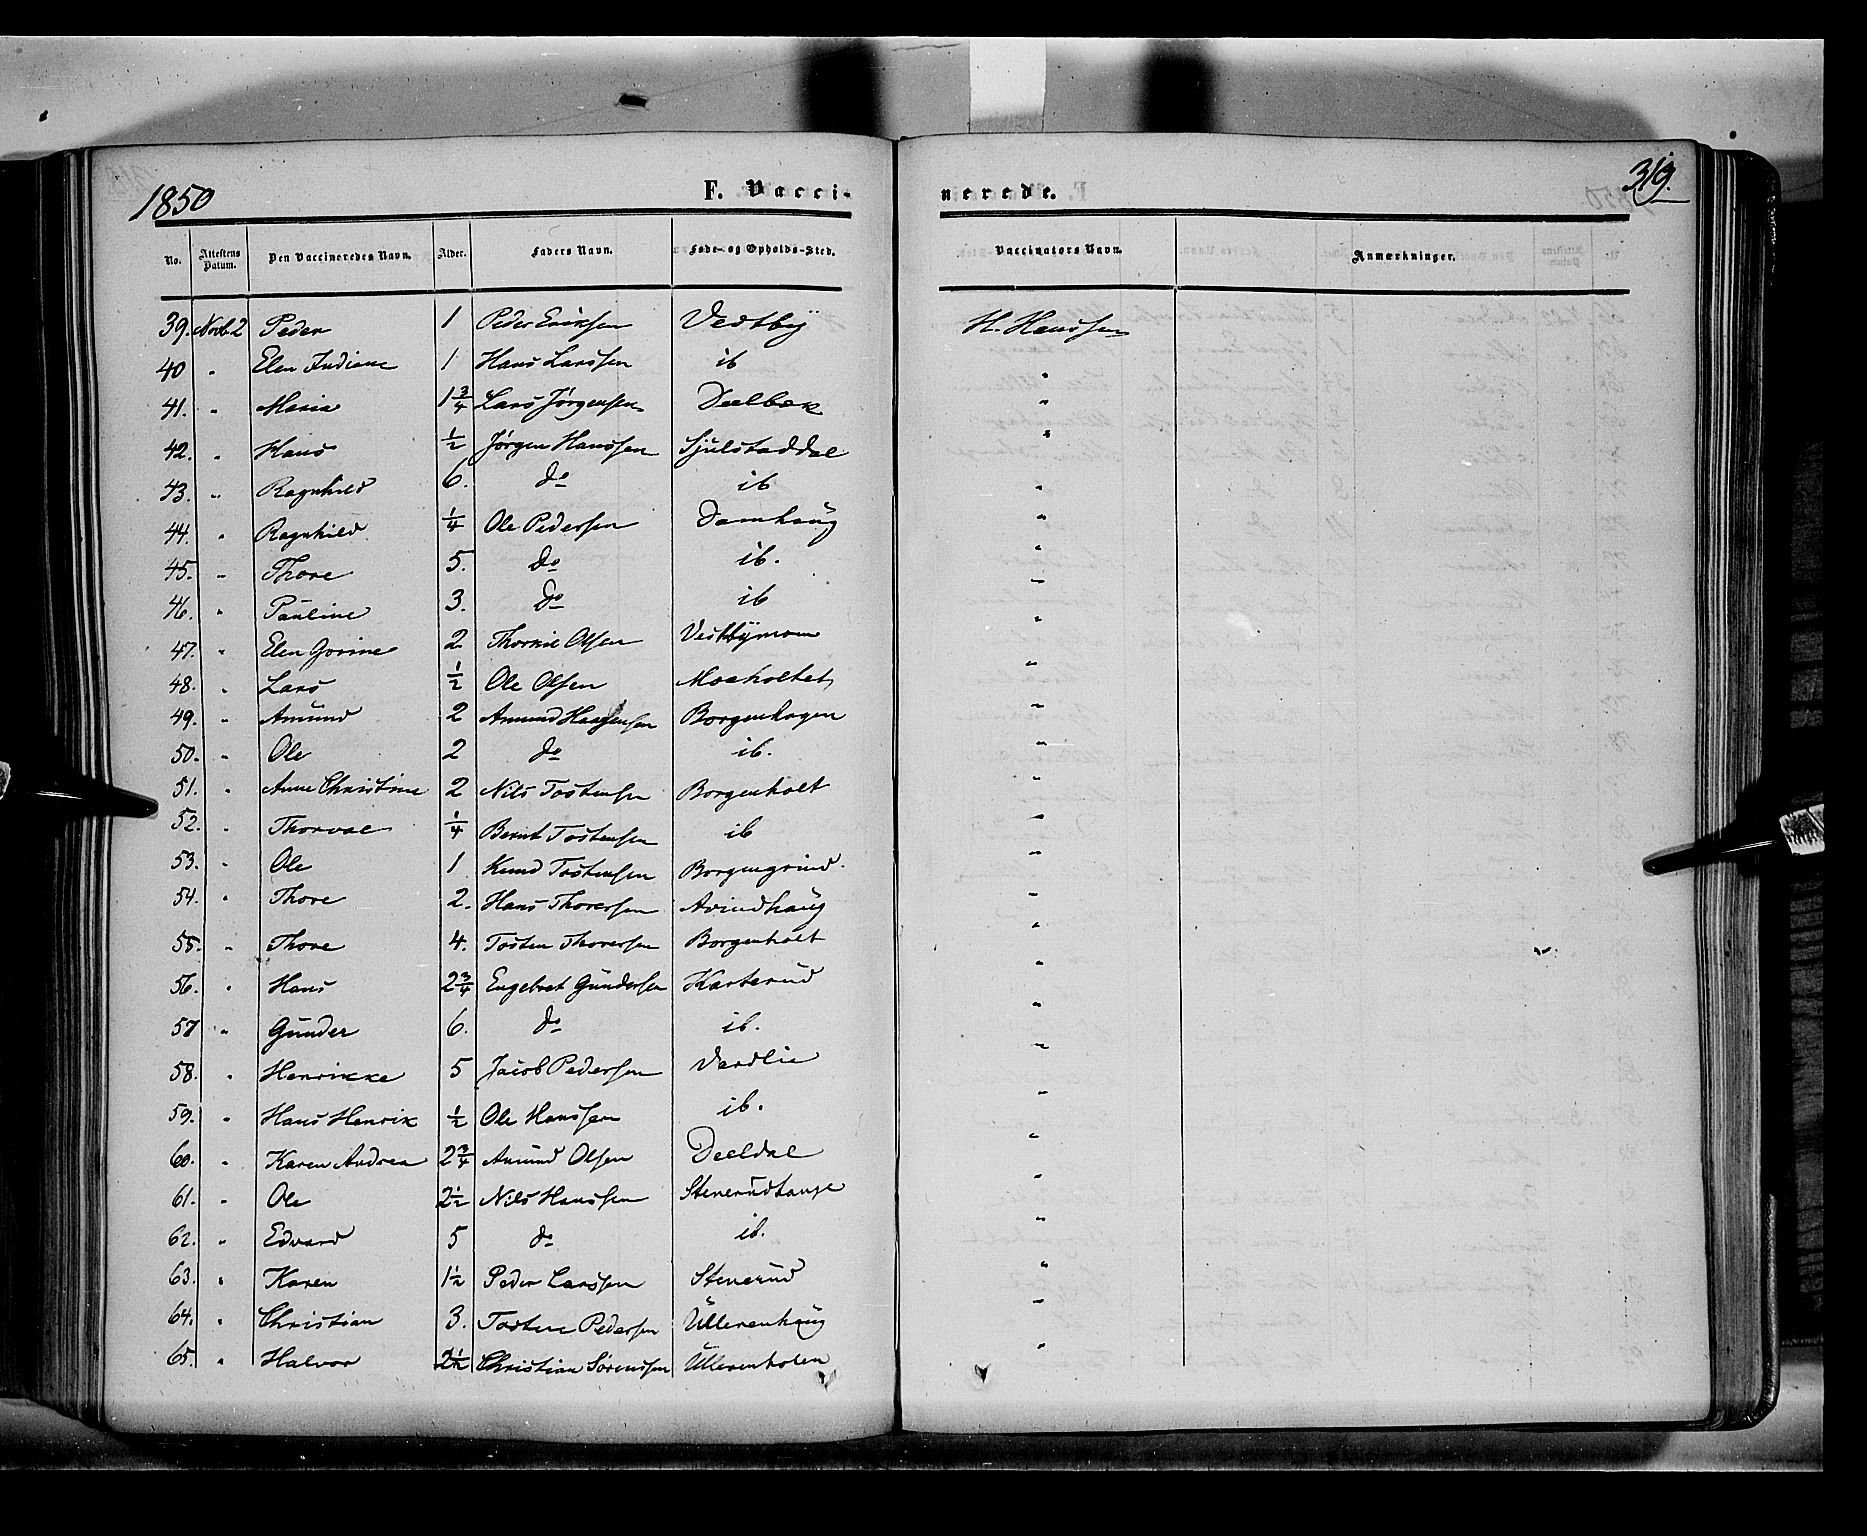 1850 F. Vaccinerede. 319.
No. Attestens Datum. Den Vaccineredes Navn. Alder. Faders Navn. Føde- og Opholds-Sted. Vaccinators Navn. Anmærkninger.
39. Novb. 2 Peder 1 Peder Eriksen Vestby H. Hanssen
40 " Elen Indiane 1 Hans Larssen ib "
41. " Maria 1 3/4 Lars Jørgensen Deelbek "
42. " Hans 1/2 Jørgen Hanssen Sjulstaddal "
43. " Ragnhild 6. do ib "
44. " Ragnhild 1/4 Ole Pedersen Damhaug "
45. " Thore 5. do ib. "
46. " Pauline 3. do ib "
47. " Elen Gorine 2 Thorkil Olsen Vestbymoen "
48. " Lars 1/2 Ole Olsen Moeholtet "
49. " Amund 2 Amund Haagensen Borgenhagen "
50. " Ole 2 do ib. "
51. " Anne Christine 2 Nils Tostensen Borgenholt "
52. " Thorval 1/4 Bernt Tostensen ib "
53. " Ole 1 Knud Tostensen Borgengrind. "
54. " Thore 2. Hans Thorersen Avindhaug "
55. " Thore 4. Tosten Thorersen Borgenholt "
56. " Hans 2 3/4 Engebret Gundersen Karterud "
57 " Gunder 6. do ib. "
58. " Henrikke 5 Jacob Pedersen Vardlie "
59. " Hans Henrik 1/2 Ole Hanssen ib. "
60. " Karen Andrea 2 3/4 Amund Olsen Deeldal "
61. " Ole 2 1/2 Nils Hanssen Stenerudtange "
62. " Edvard 5 do ib. "
63. " Karen 1 1/2 Peder Larssen Stenerud "
64. " Christian 3. Tosten Pedersen Ullerenhaug "
65. " Halvor 2 1/2 Christian Sørenssen Ullerenholen "